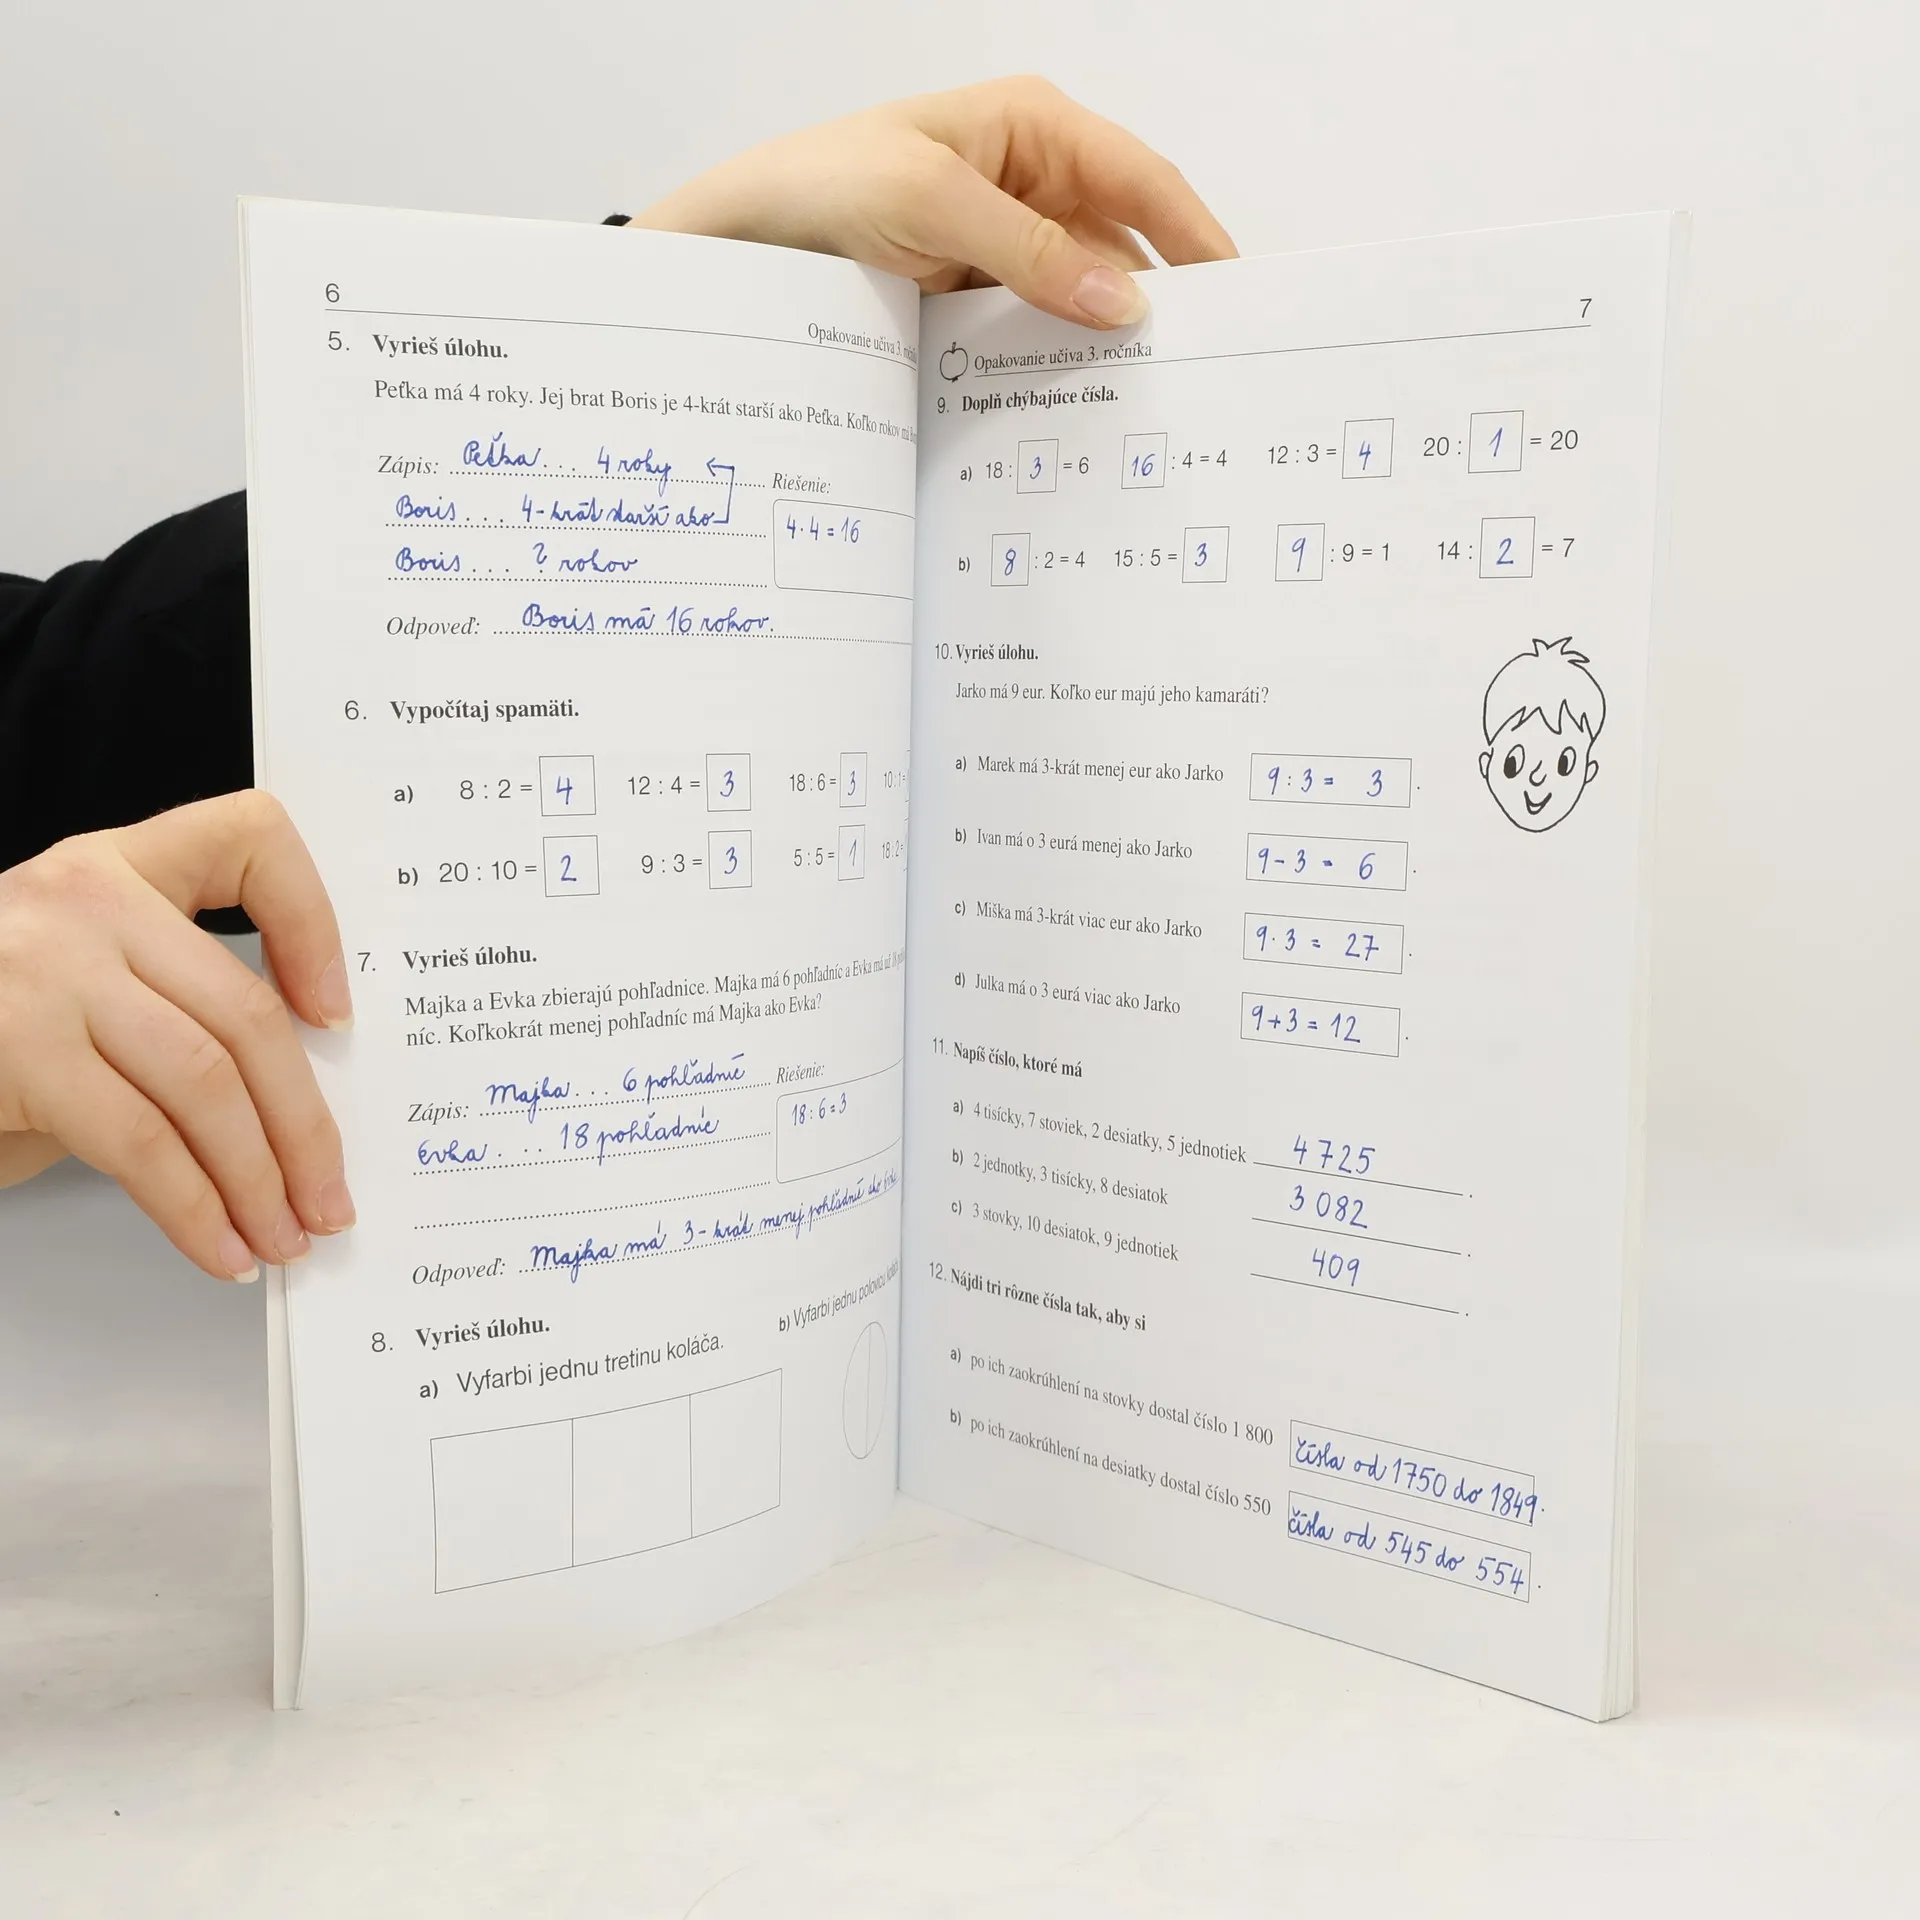 6
Opakovanie učiva 3.
5. Vyrieš úlohu.
Peťka má 4 roky. Jej brat Boris je 4-krát starší ako Peťka. Koľko rokov má
Zápis: Peťka ... 4 roky
Riešenie:
Boris ... 4-krát starší ako
4·4=16
Boris ... ? rokov
Odpoveď: Boris má 16 rokov.
6. Vypočítaj spamäti.
a) 8 : 2 = 4 12 : 4 = 3 18 : 6 = 3 10 : 1 =
b) 20 : 10 = 2 9 : 3 = 3 5 : 5 = 1 18 : 2 =
7. Vyrieš úlohu.
Majka a Evka zbierajú pohľadnice. Majka má 6 pohľadníc a Evka má už 18
níc. Koľkokrát menej pohľadníc má Majka ako Evka?
Zápis: Majka ... 6 pohľadníc
Riešenie:
Evka ... 18 pohľadníc
18:6=3
Odpoveď: Majka má 3-krát menej pohľadníc ako
8. Vyrieš úlohu.
a) Vyfarbi jednu tretinu koláča.
b) Vyfarbi jednu polovicu
7
Opakovanie učiva 3. ročníka
9. Doplň chýbajúce čísla.
a) 18 : 3 = 6 16 : 4 = 4 12 : 3 = 4 20 : 1 = 20
b) 8 : 2 = 4 15 : 5 = 3 9 : 9 = 1 14 : 2 = 7
10. Vyrieš úlohu.
Jarko má 9 eur. Koľko eur majú jeho kamaráti?
a) Marek má 3-krát menej eur ako Jarko 9 : 3 = 3 .
b) Ivan má o 3 eurá menej ako Jarko 9 - 3 = 6 .
c) Miška má 3-krát viac eur ako Jarko 9 · 3 = 27 .
d) Julka má o 3 eurá viac ako Jarko 9+3 = 12 .
11. Napíš číslo, ktoré má
a) 4 tisícky, 7 stoviek, 2 desiatky, 5 jednotiek 4 725 .
b) 2 jednotky, 3 tisícky, 8 desiatok 3 082 .
c) 3 stovky, 10 desiatok, 9 jednotiek 409 .
12. Nájdi tri rôzne čísla tak, aby si
a) po ich zaokrúhlení na stovky dostal číslo 1 800 čísla od 1750 do 1849.
b) po ich zaokrúhlení na desiatky dostal číslo 550 čísla od 545 do 554 .